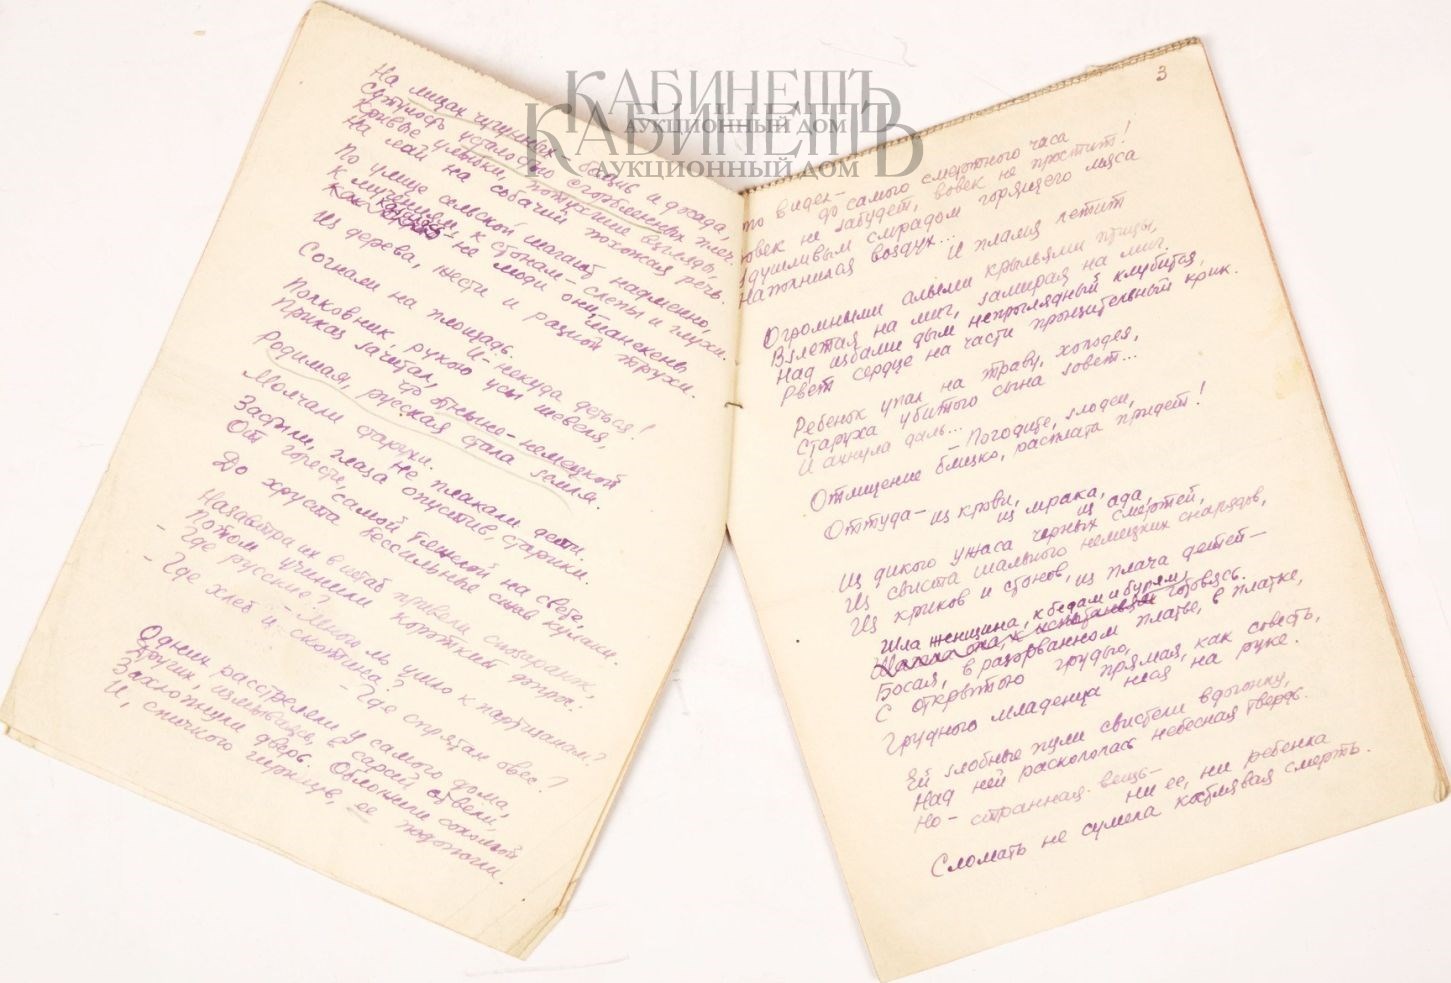 КАБИНЕТЪ
АУКЦИОННЫЙ ДОМ
КАБИНЕТЪ
АУКЦИОННЫЙ ДОМ
На лицах
Сутулость усталостью сгорбленных плеч.
Кривые улыбки, потухшие взгляды,
На лай на собачий похожая речь.
По улице сельской шагают надменно,
К мучениям, к стонам – слепы и глухи.
Как будто не люди они, манекены
Из дерева, шерсти и разной трухи.
Согнали на площадь.
И – некуда деться!
Полковник, рукою усы шевеля,
Приказ зачитал,
что отныне – немецкой
Родимая, русская стала земля.
Молчали старухи.
Не плакали дети.
Застыли, глаза опустив, старики.
От горести, самой тяжелой на свете,
До хруста бессильные сжав кулаки.
Назавтра их в штаб привели спозаранок,
Потом учинили короткий допрос.
– Где русские?
– Давно ль ушло к партизанам?
– Где хлеб и скотина?
– Где спрятан овес?
Одних расстреляли у самого дома,
Других, измываясь, в сарай отвели,
Захлопнули дверь. Обложили соломой
И, спичкою чиркнув, ее подожгли.
3
то видел –
до самого смертного часа
овек не забудет, вовек не простит!
удушливым смрадом горящего мяса
Наполнился воздух...
И пламя летит
Огромными алыми крыльями птицы,
Взлетая на миг, замирая на миг.
Над избами дым непроглядный клубится,
Рвет сердце на части пронзительный крик.
Ребенок упал на траву, холодея,
Старуха убитого сына зовет...
И ахнула даль...
– Погодите, злодеи,
Отмщение близко, расплата придет!
Оттуда – из крови,
из мрака,
из ада,
Из дикого ужаса черных смертей,
Из свиста шального немецких снарядов,
Из криков и стонов, из плача детей –
Шла женщина, к бедам и бурям
готовясь.
Босая, в разорванном платье, в платке,
С открытою грудью,
прямая, как совесть,
Грудного младенца неся на руке.
Ей злобные пули свистели вдогонку,
Над ней раскололась небесная твердь.
Но – странная вещь –
ни ее, ни ребенка
Сломать не сумела костлявая смерть.